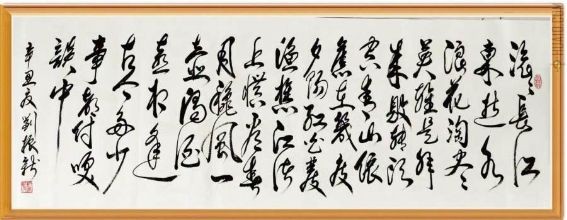 滚々長江
東逝水
浪花淘盡
英雄是非
成敗轉頭
空青山依
舊在幾度
夕陽紅白髮
漁樵江渚
上慣看春
月穐風一
壺濁酒
喜相逢
古今多少
事都付笑
談中
辛丑夏劉振